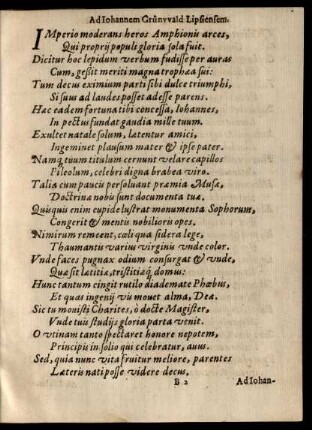 Ad Iohannem Grünvvald Lipsiensem.
IMperio moderans heros Amphionis arces,
Qui proprij populi gloria sola fuit.
Dicitur hoc lepidum verbum fudisse per auras
Cum, gestit meriti magna trophæa sui:
Tum decus eximium parti sibi dulce triumphi,
Si suus ad laudes posset adesse parens.
Hac eadem fortuna tibi concessa, Iohannes,
In pectus fundat gaudia mille tuum.
Exultet natale solum, lætentur amici,
Ingeminet plausum mater & ipse pater.
Namq; tuum titulum cernunt velare capillos
Pileolum, celebri digna brabea viro.
Talia cum paucis persoluant præmia Musæ,
Doctrinæ nobis sunt documenta tuæ.
Quisquis enim cupide lustrat monumenta Sophorum,
Congerit & mentis nobilioris opes.
Nimirum remeent, cæli qua sidera lege,
Thaumantis varius virginis vnde color.
Vnde faces pugnax odium consurgat & vnde,
Quæ sit lætitiæ, tristitiæq; domus:
Hunc tantum cingit rutilo diademate Phœbus,
Et quas ingenij vis mouet alma, Dea.
Sic tu monisti Charites, ò docte Magister,
Vnde tuis studijs gloria parta venit.
O vtinam tanto spectaret honore nepotem,
Principis in solio qui celebratur, auus.
Sed, quia nunc vita fruitur meliore, parentes
Lateris nati posse videre decus.
B 2 Ad Iohan-